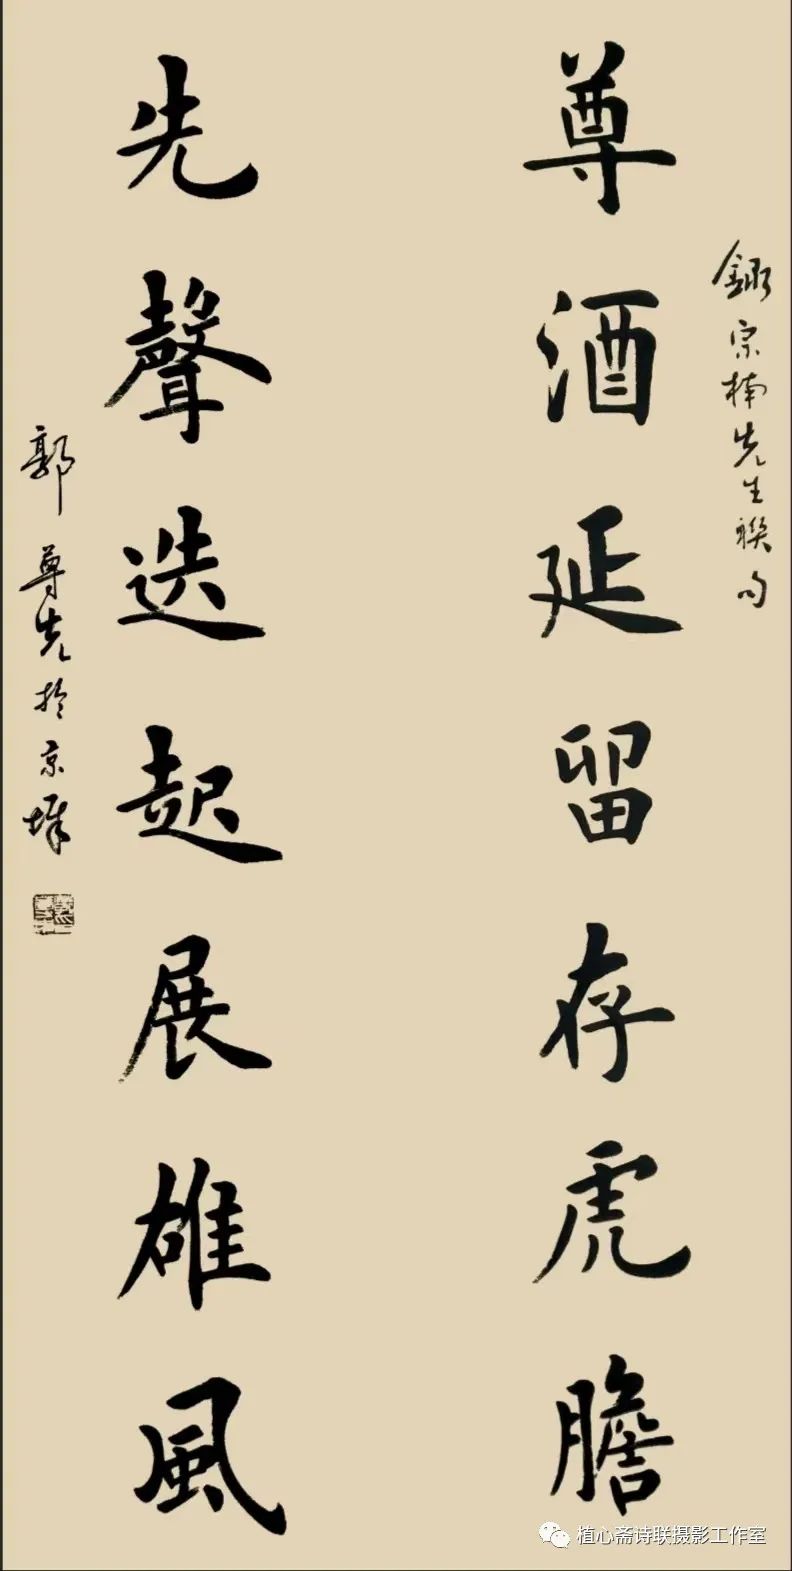 尊酒延留存虎膽
先聲迭起展雄風
錄宗楠先生聯句
郭尊先於京華
植心斋诗联摄影工作室